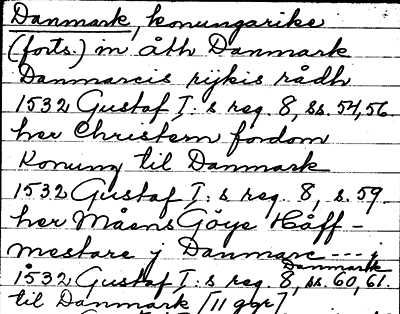 Danmark, konungarike
(forts.) in åth Danmark
Danmarcis rijkis rådh
1532 Gustaf I:s reg. 8, ss. 54, 56.
her Christern fordom
Konung til Danmark
1532 Gustaf I:s reg. 8, s. 59.
her Måens Göye Håff-
mestare j Danmarc --- j
Danmarck
1532 Gustaf I:s reg. 8, ss. 60, 61.
til Danmark [11 ggr]